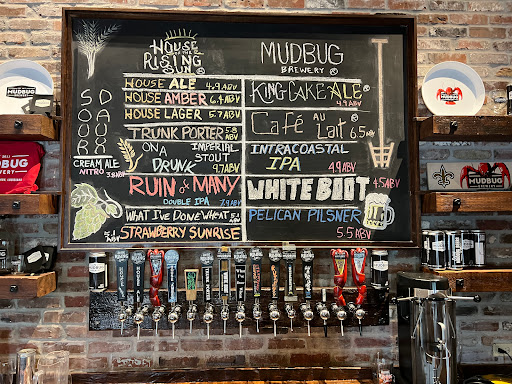 HOUSE OF THE
RISING
SUN
HOUSE ALE 4.9 ABV
HOUSE AMBER 6.4 ABV
HOUSE LAGER 5.7 ABV
TRUNK PORTER 5.8 ABV
ON A IMPERIAL
DRUNK STOUT
9.7% ABV
CREAM ALE
NITRO
RUIN of MANY
DOUBLE IPA 7.9 ABV
WHAT I'VE DONE WHEAT
STRAWBERRY SUNRISE
MUDBUG
BREWERY
KING CAKE ALE
4.9 ABV
Café AU Lait 6.5 ABV
INTRACOASTAL
IPA 4.9 ABV
WHITE BOOT 4.5 ABV
PELICAN PILSNER
5.5 ABV
MUDBUG
MUDBUG
MUDBUG
MUDBUG